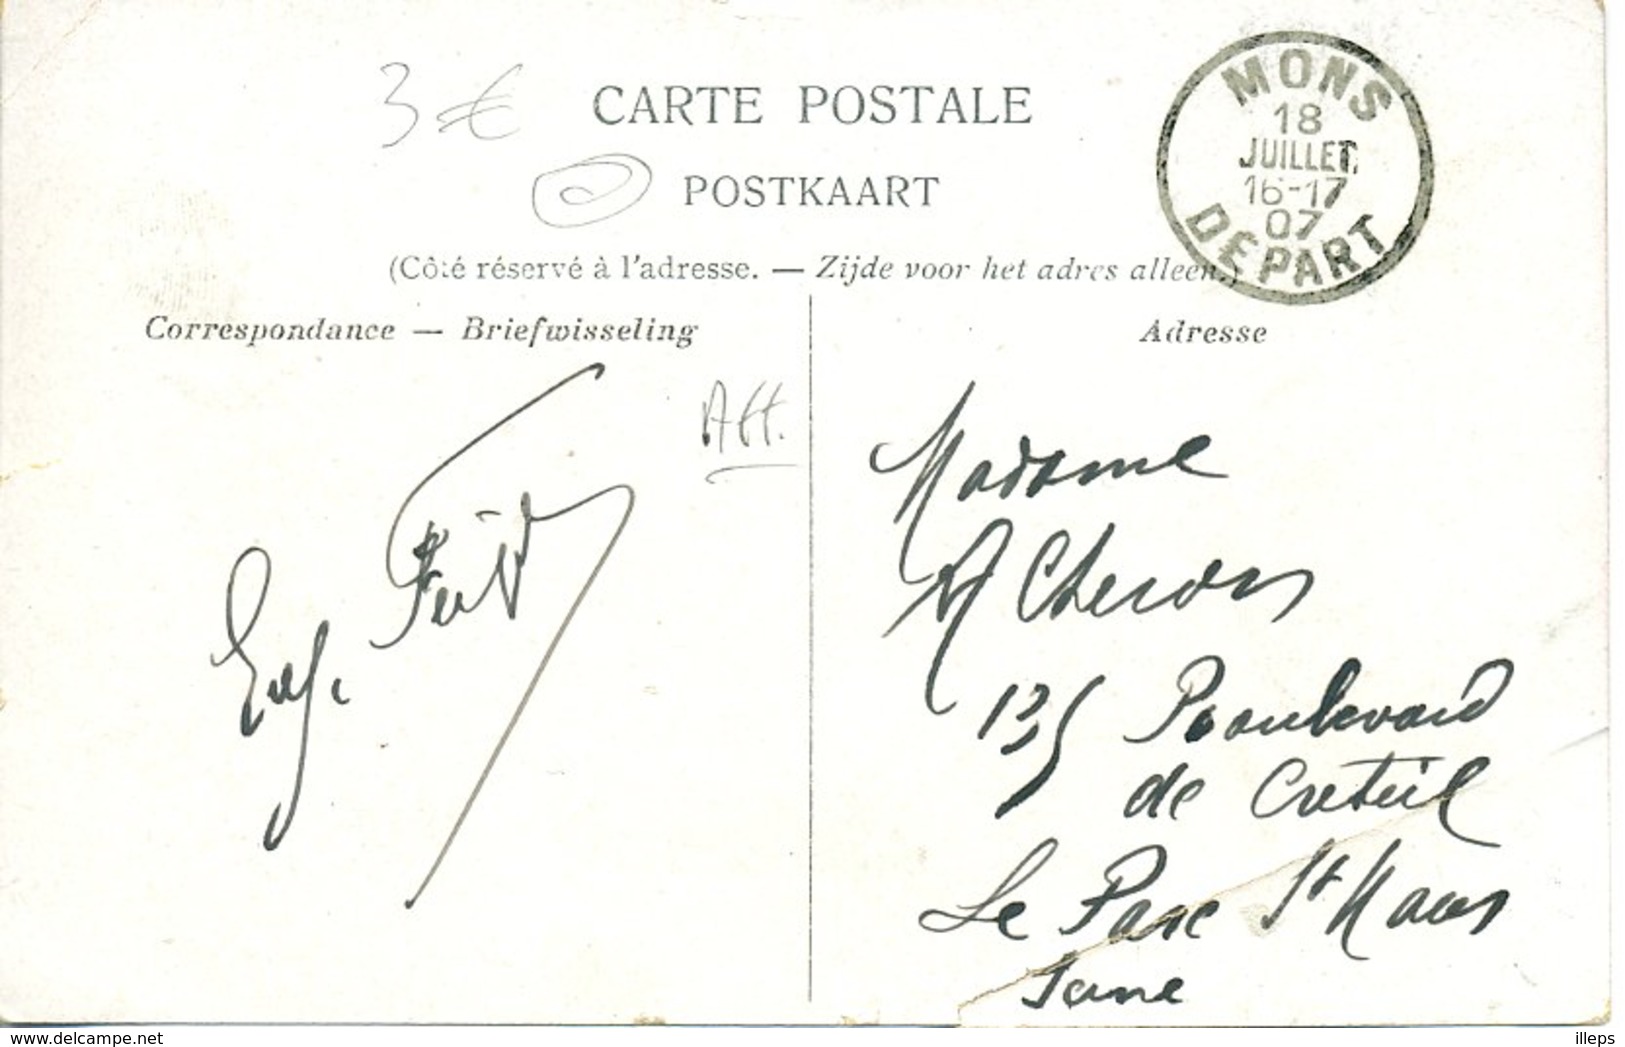 3 €
CARTE POSTALE
POSTKAART
(Côté réservé à l'adresse. — Zijde voor het adres alleen.)
MONS
18
JUILLET
16-17
07
DEPART
Correspondance — Briefwisseling
Adresse
Att.
Madame
A Cheron
135 Boulevard
de Créteil
Le Parc St Maur
Seine
delcampe.net
illeps